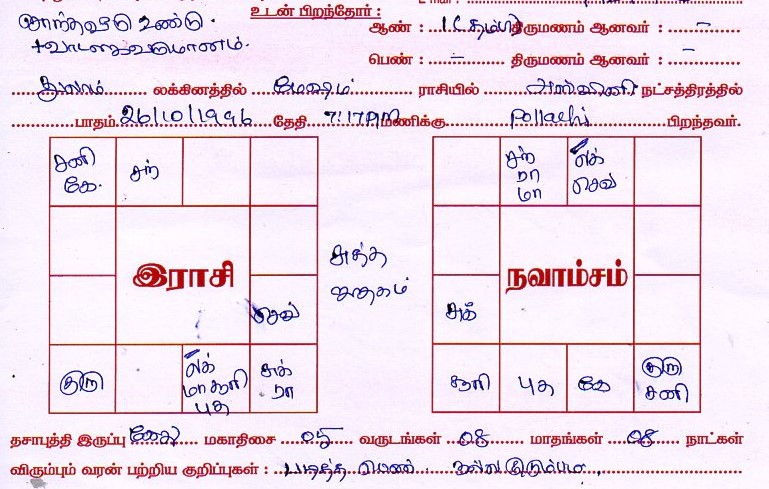 சொந்தவீடு உண்டு.
உடன் பிறந்தோர் :
ஆண் : 1 திருமணம் ஆனவர் : –
+ வாடகை வருமானம்.
பெண் : – திருமணம் ஆனவர் : –
துலாம் லக்கினத்தில் மேஷம் ராசியில் அஸ்வினி நட்சத்திரத்தில்
பாதம். 26/10/1996 தேதி 7:17 மணிக்கு Pollachi பிறந்தவர்.
சனி கே. சந்
சந் ரா மா ல செவ்
இராசி
சுத்த ஜாதகம்
நவாம்சம்
செவ் சுக்
குரு ல மா சூரி புத சுக் ரா
சூரி புத கே குரு சனி
தசாபுத்தி இருப்பு கேது மகாதிசை 05 வருடங்கள் 08 மாதங்கள் 08 நாட்கள்
விரும்பும் வரன் பற்றிய குறிப்புகள் : படித்த பெண். நல்ல குடும்பம்.